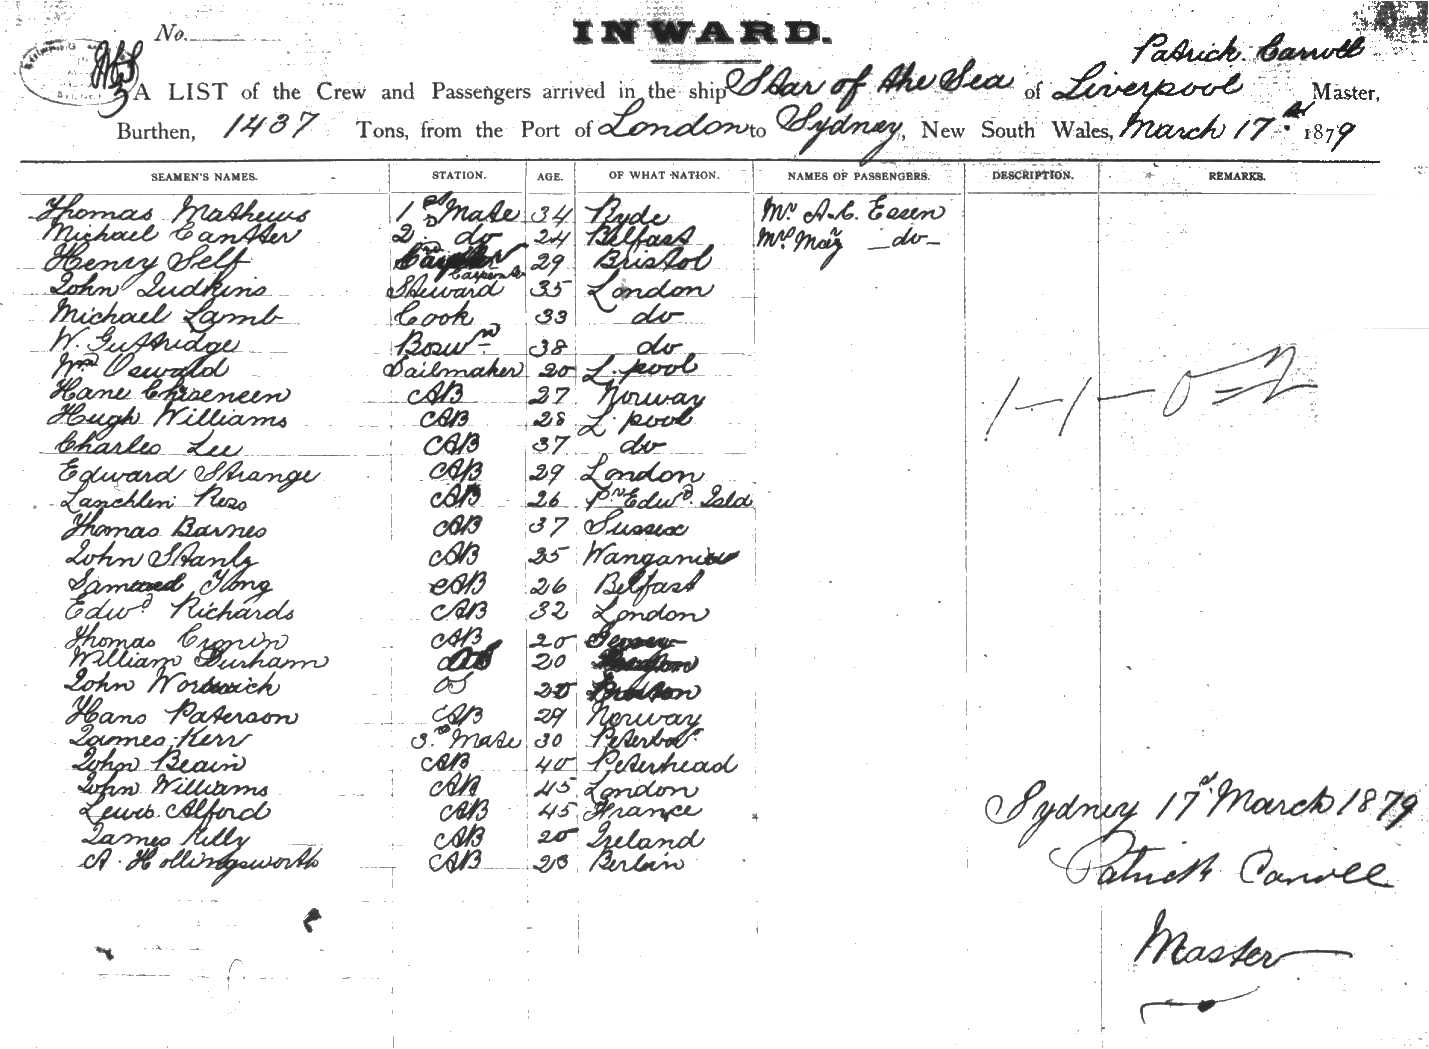 No.
INWARD.
Patrick Carroll
A LIST of the Crew and Passengers arrived in the ship Star of the Sea of Liverpool Master,
Burthen, 1437 Tons, from the Port of London to Sydney, New South Wales, March 17th 1879
SEAMEN'S NAMES. STATION. AGE. OF WHAT NATION. NAMES OF PASSENGERS. DESCRIPTION. REMARKS.
Thomas Mathews 1st Mate 34 Ryde Mr A. C. Essen
Michael Cantter 2nd do 24 Belfast Mrs May do
Henry Self Carpenter 29 Bristol
John Judkins Steward 35 London
Michael Lamb Cook 33 do
W. Guttridge Boswn 38 do
Wm Oswald Sailmaker 20 L. pool
Hane Chrseneen AB 27 Norway
Hugh Williams AB 28 L. pool
Charles Lee AB 37 do
Edward Strange AB 29 London
Lanchlin Ross AB 26 Pr Edwd. Isld
Thomas Barnes AB 37 Sussex
John Stanly AB 25
Tong AB 26 Belfast
Edwd Richards AB 32 London
Thomas Cronin AB 20
William Durham 20
John OS
Hans Paterson AB 29 Norway
James Kerr 3rd Mate 30
John Beain AB 40 Peterhead
John Williams AB 45 London
Lewis Alford AB 45 France
James Killy AB Ireland
A. Hollingsworth AB Berlin
1-1-0
Sydney 17th March 1879
Patrick Carroll
Master